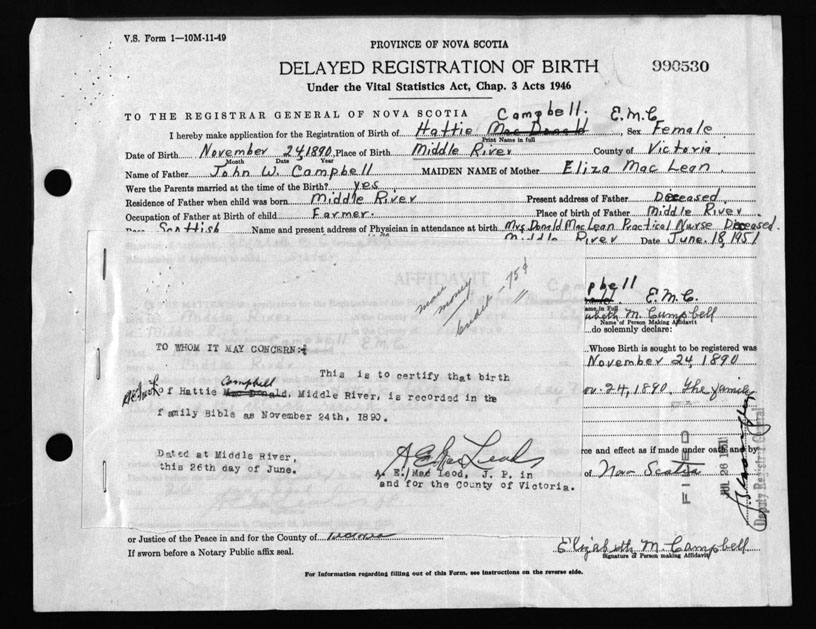 V.S. Form 1—10M-11-49
PROVINCE OF NOVA SCOTIA
DELAYED REGISTRATION OF BIRTH
990530
Under the Vital Statistics Act, Chap. 3 Acts 1946
TO THE REGISTRAR GENERAL OF NOVA SCOTIA
Campbell. E.M.C
I hereby make application for the Registration of Birth of Hattie Mac Donald, Sex Female
Print Name in full
Date of Birth November 24, 1890, Place of Birth Middle River County of Victoria
Month Date Year
Name of Father John W. Campbell MAIDEN NAME of Mother Eliza Mac Lean.
Were the Parents married at the time of the Birth? yes
Residence of Father when child was born Middle River Present address of Father Deceased
Occupation of Father at Birth of child Farmer. Place of birth of Father Middle River
Scottish Name and present address of Physician in attendance at birth Mrs Donald MacLean Practical Nurse Deceased.
Middle River Date June 18, 1951
AFFIDAVIT
more money
credit - 75¢
pbell E.M.C.
ame in Full
abeth M. Campbell
Name of Person Making Affidavit
do solemnly declare:
TO WHOM IT MAY CONCERN:
Whose Birth is sought to be registered was
November 24, 1890
This is to certify that birth
Campbell
of Hattie Mac Donald, Middle River, is recorded in the
ov. 24, 1890. The family
family Bible as November 24th, 1890.
FILED
JUL 26 1951
Deputy Registrar General
re and effect as if made under oath and by
Dated at Middle River,
this 26th day of June.
A E Mac Leod
A. E. Mac Leod, J. P. in
and for the County of Victoria.
of Nova Scotia
or Justice of the Peace in and for the County of Victoria
If sworn before a Notary Public affix seal.
Elizabeth M. Campbell
Signature of Person making Affidavit
For Information regarding filling out of this Form, see instructions on the reverse side.